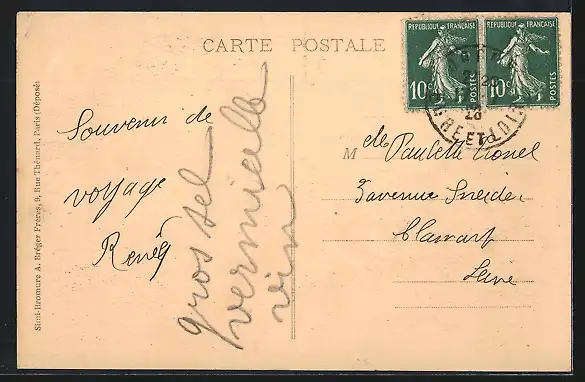 CARTE POSTALE
REPUBLIQUE FRANÇAISE
10c POSTES
REPUBLIQUE FRANÇAISE
10c POSTES
28
EURE ET LOIR
Souvenir de
voyage
Renée
gros sel
vermicelle
vin
M elle Paulette Lionel
3 avenue Sneider
Clamart
Seine
Simi-Bromure A. Bréger Frères, 9, Rue Thénard, Paris (Déposé)